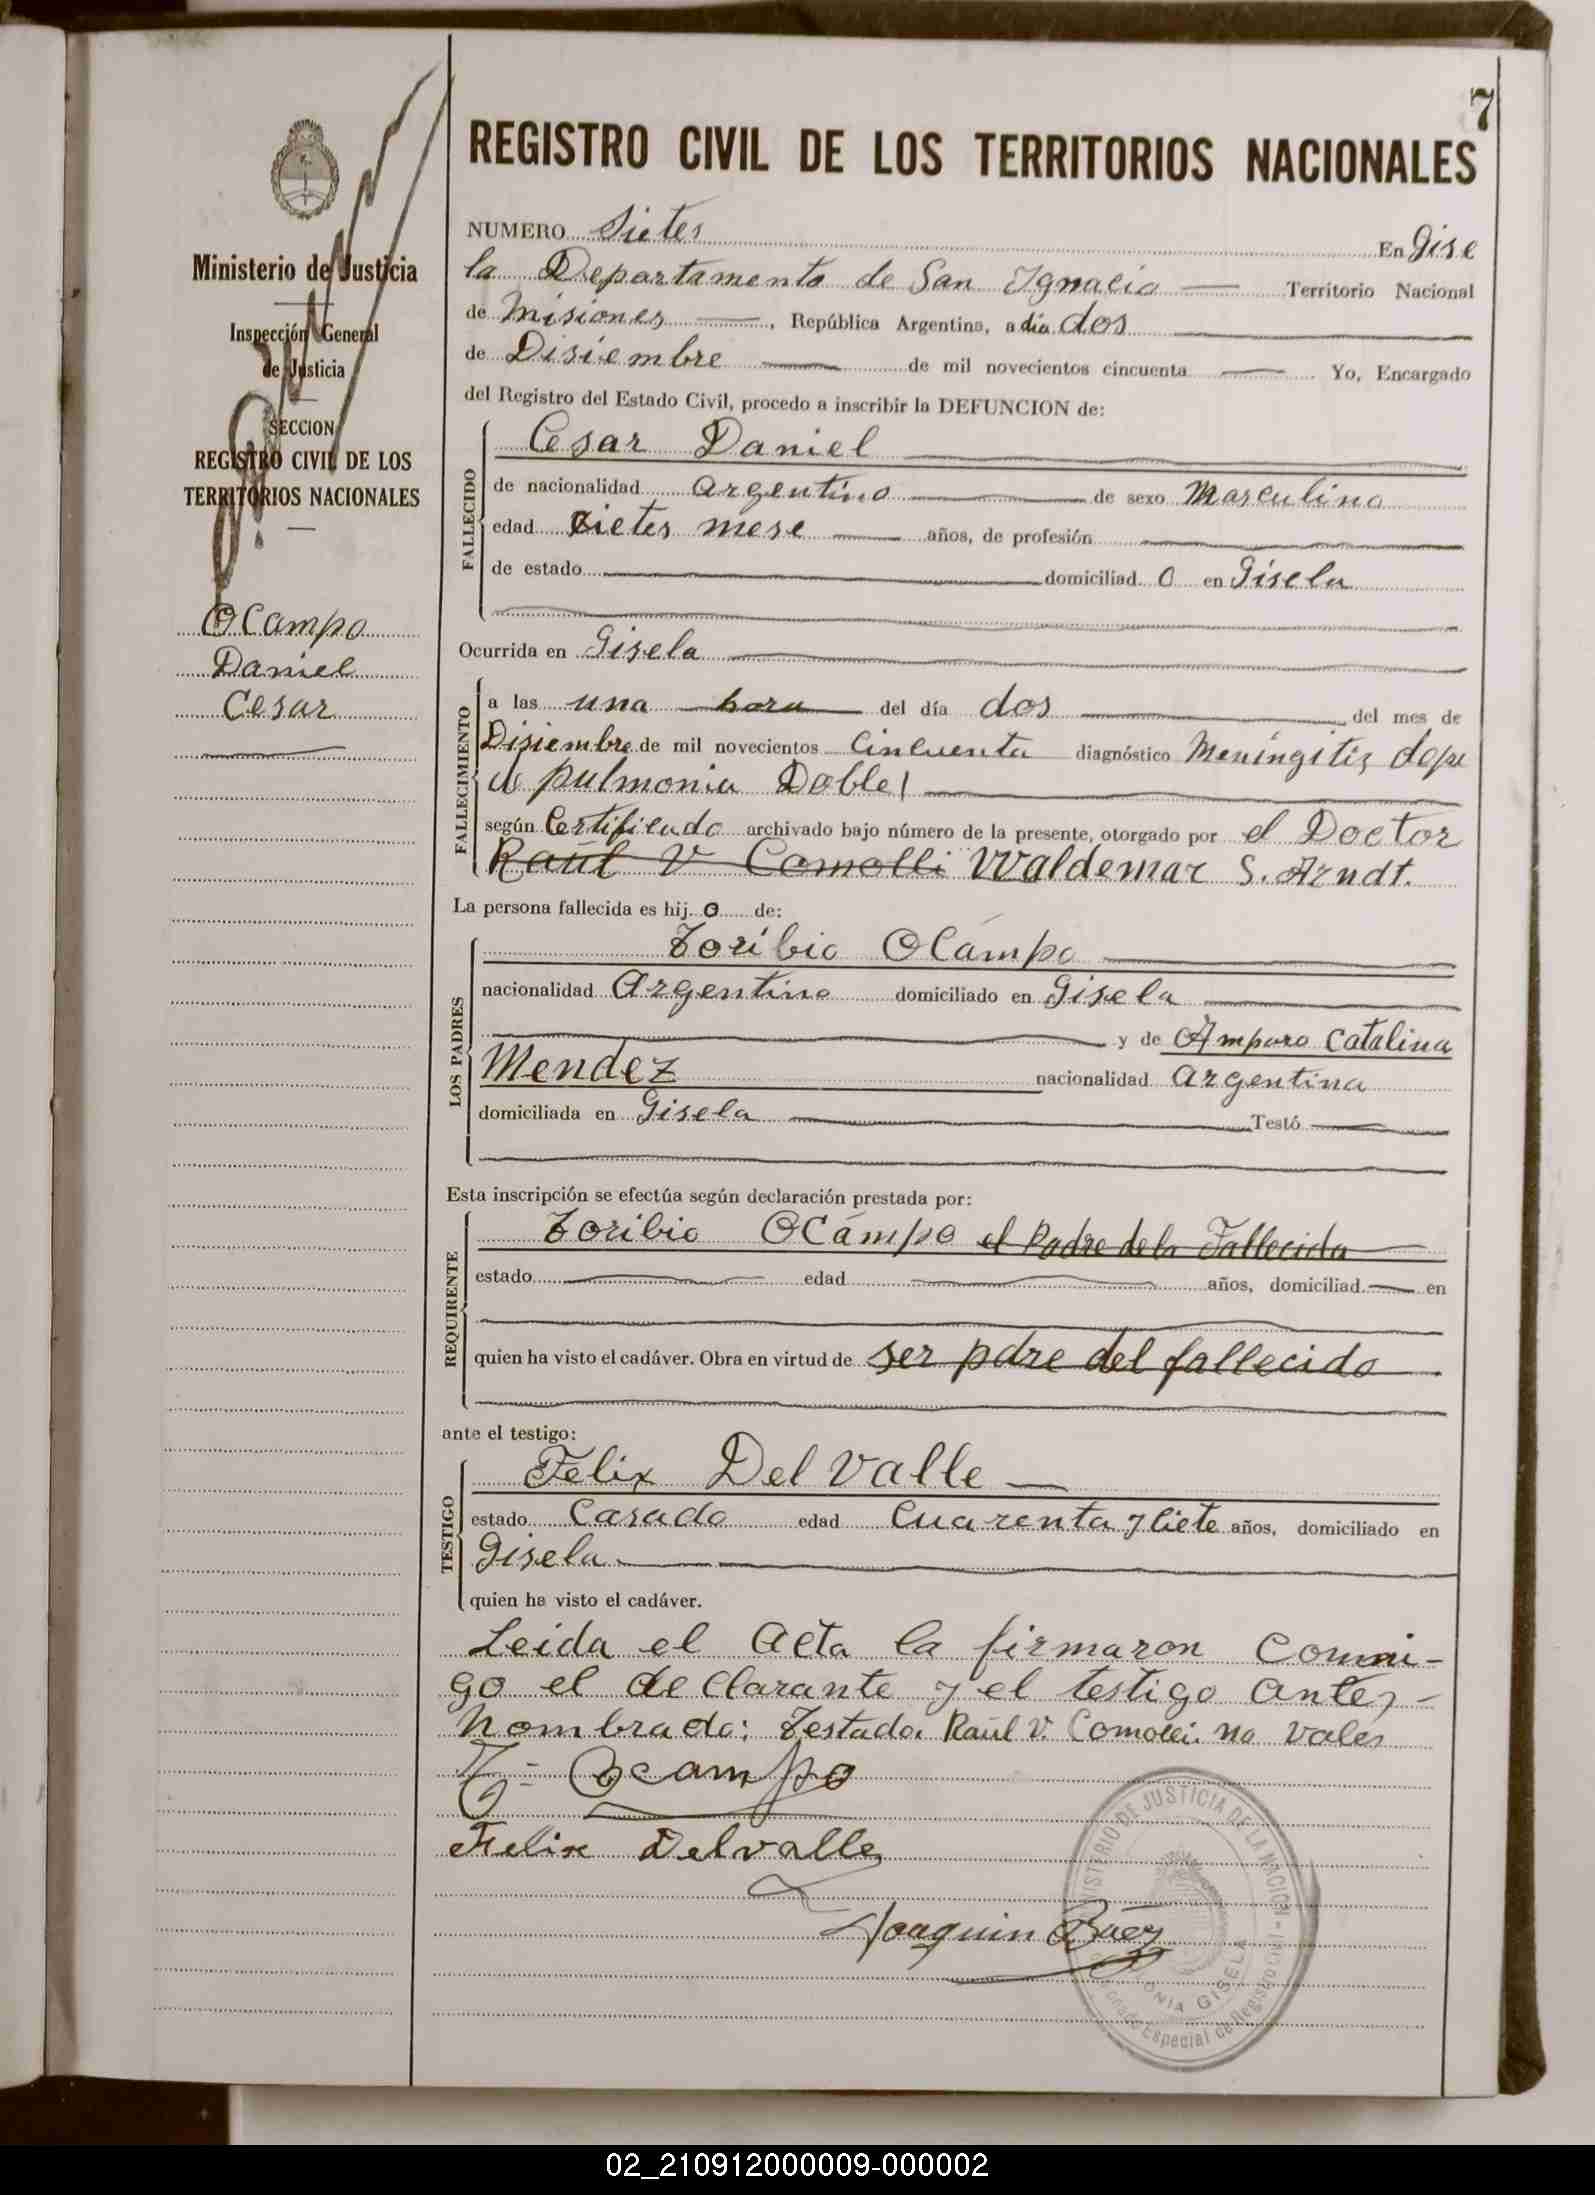 7
REGISTRO CIVIL DE LOS TERRITORIOS NACIONALES
Ministerio de Justicia
Inspección General
de Justicia
SECCION
REGISTRO CIVIL DE LOS
TERRITORIOS NACIONALES
Ocampo
Daniel
Cesar
NUMERO Sietes En Gise
la Departamento de San Ignacio Territorio Nacional
de Misiones, República Argentina, a día dos
de Disiembre de mil novecientos cincuenta Yo, Encargado
del Registro del Estado Civil, procedo a inscribir la DEFUNCION de:
FALLECIDO
Cesar Daniel
de nacionalidad argentino de sexo Masculino
edad Sietes mese años, de profesión
de estado domiciliad o en Gisela
Ocurrida en Gisela
FALLECIMIENTO
a las una hora del día dos del mes de
Disiembre de mil novecientos Cincuenta diagnóstico Meningitis
pulmonia Doble
según Certificado archivado bajo número de la presente, otorgado por el Doctor
Raúl V Comolli Waldemar S. Arndt.
La persona fallecida es hij o de:
LOS PADRES
Toribio Ocámpo
nacionalidad Argentino domiciliado en Gisela
y de Amparo Catalina
Mendez nacionalidad argentina
domiciliada en Gisela Testó
Esta inscripción se efectúa según declaración prestada por:
REQUIRENTE
Toribio Ocámpo el Padre de la Fallecida
estado edad años, domiciliad en
quien ha visto el cadáver. Obra en virtud de ser pdre del fallecido
ante el testigo:
TESTIGO
Felix Del Valle
estado Casado edad Cuarenta y Ciete años, domiciliado en
Gisela
quien ha visto el cadáver.
Leida el acta la firmaron Conmi-
go el declarante y el testigo antes-
nombrado: Testado. Raúl V. Comolli. no vales
T- Ocampo
Felix Delvalle
Joaquin Baez
MINISTERIO DE JUSTICIA DE LA NACION
COLONIA GISELA
Especial de Registro Civil
02_210912000009-000002